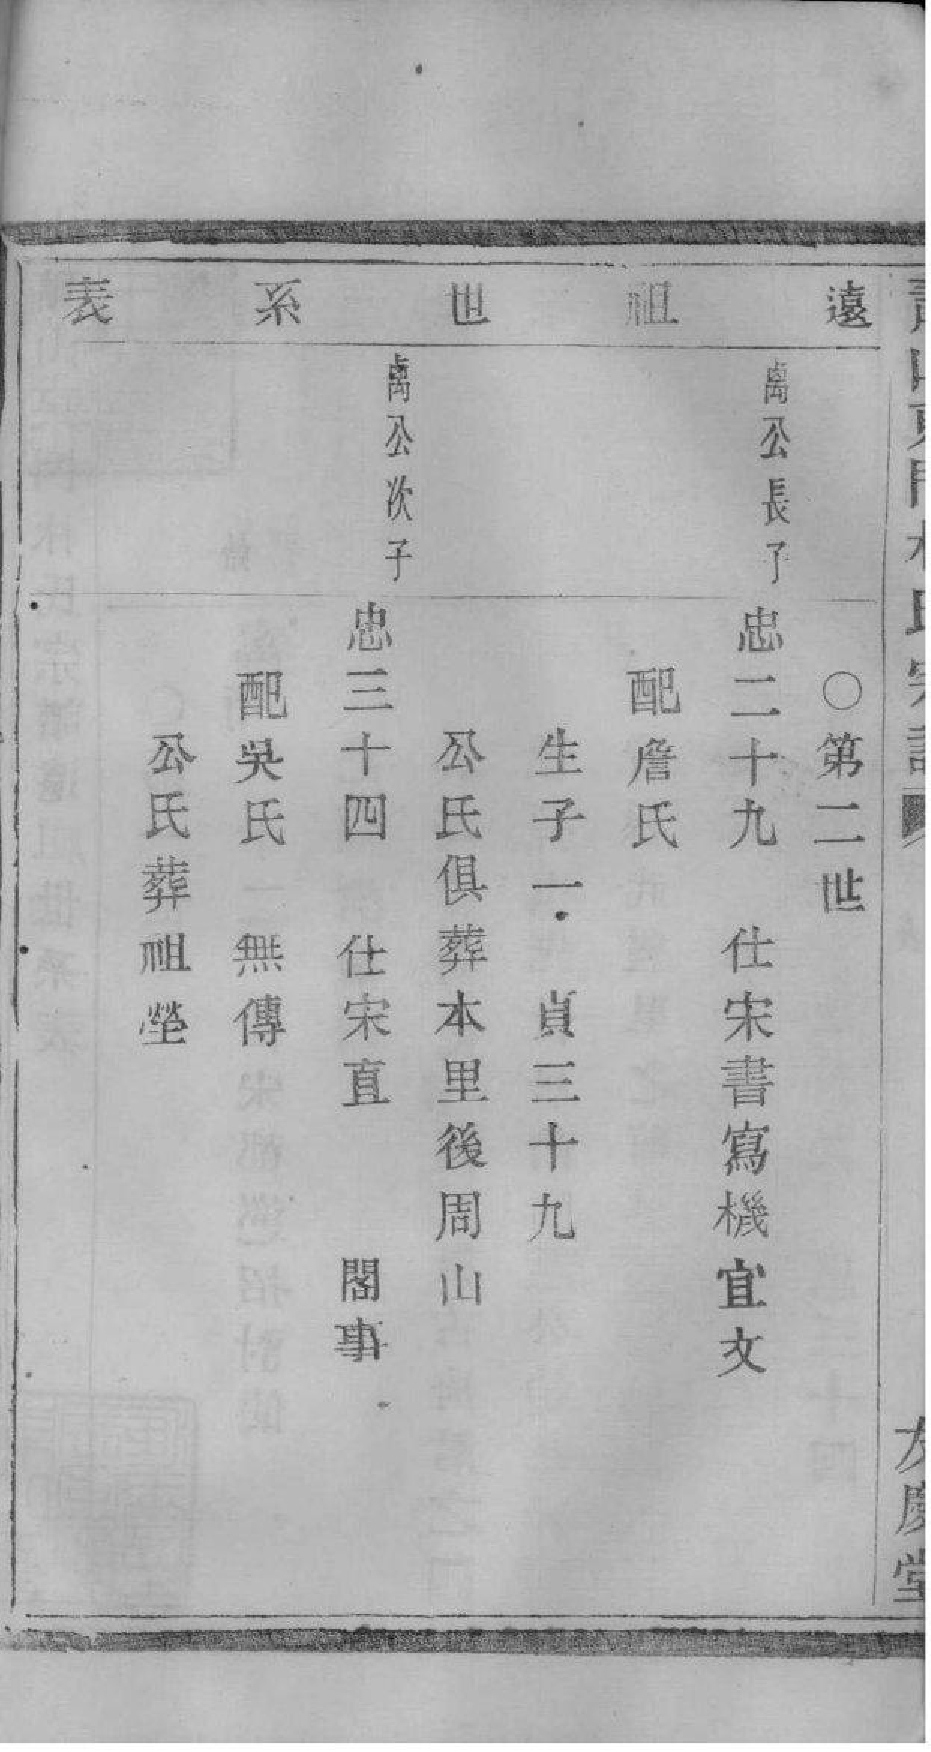 遠祖世系表
○第二世
禼公長子
忠二十九　仕宋書寫機宜文
配詹氏
生子一　貞三十九
公氏俱葬本里後周山
禼公次子
忠三十四　仕宋直　閣事
配吳氏　無傳
公氏葬祖塋
友慶堂